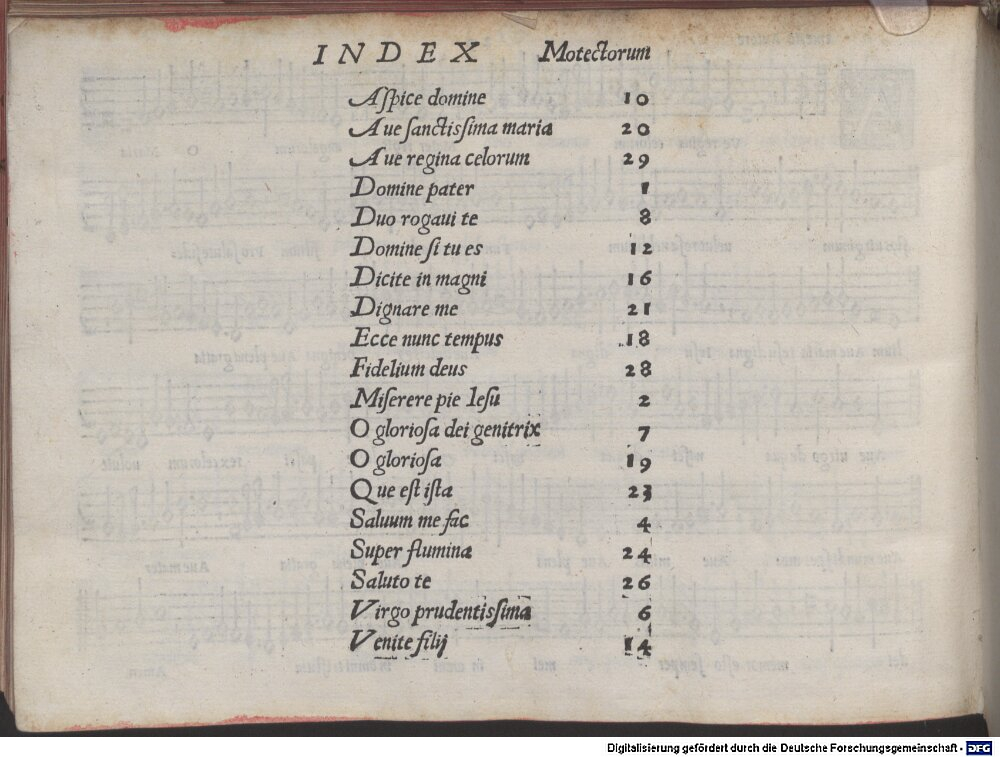 INDEX Motectorum
Aſpice domine 10
Aue ſanctiſsima maria 20
Aue regina celorum 29
Domine pater 1
Duo rogaui te 8
Domine ſi tu es 12
Dicite in magni 16
Dignare me 21
Ecce nunc tempus 18
Fidelium deus 28
Miſerere pie Ieſu 2
O glorioſa dei genitrix 7
O glorioſa 19
Que eſt iſta 23
Saluum me fac 4
Super flumina 24
Saluto te 26
Virgo prudentiſsima 6
Venite filij 14
Digitalisierung gefördert durch die Deutsche Forschungsgemeinschaft - DFG